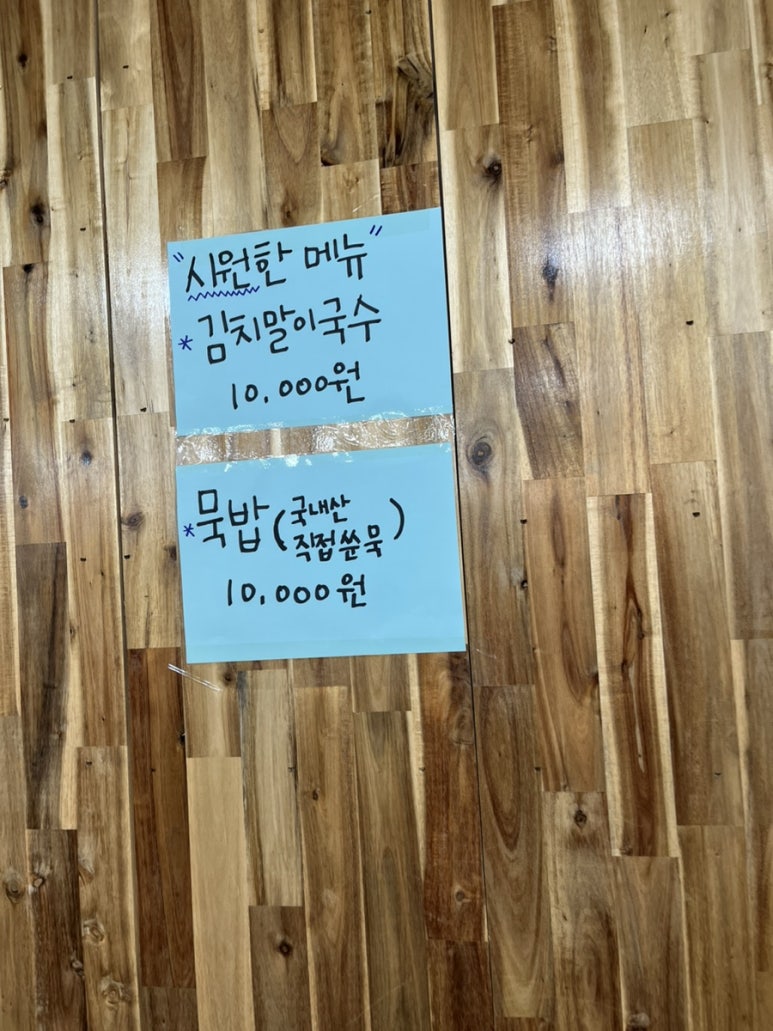 "시원한 메뉴"
* 김치말이국수
10,000원
* 묵밥 (국내산
직접 쑨 묵)
10,000원